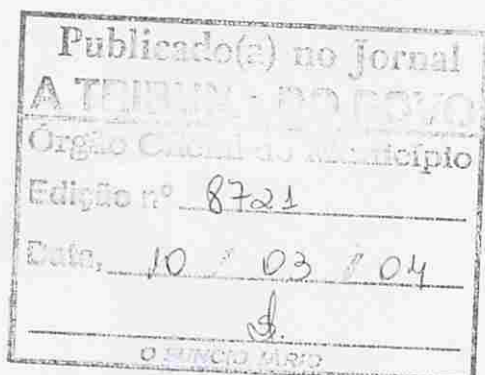 Publicado(a) no Jornal
A TRIBUNA DO POVO
Órgão Oficial do Município
Edição nº 8721
Data, 10 / 03 / 04
O FUNCIONÁRIO